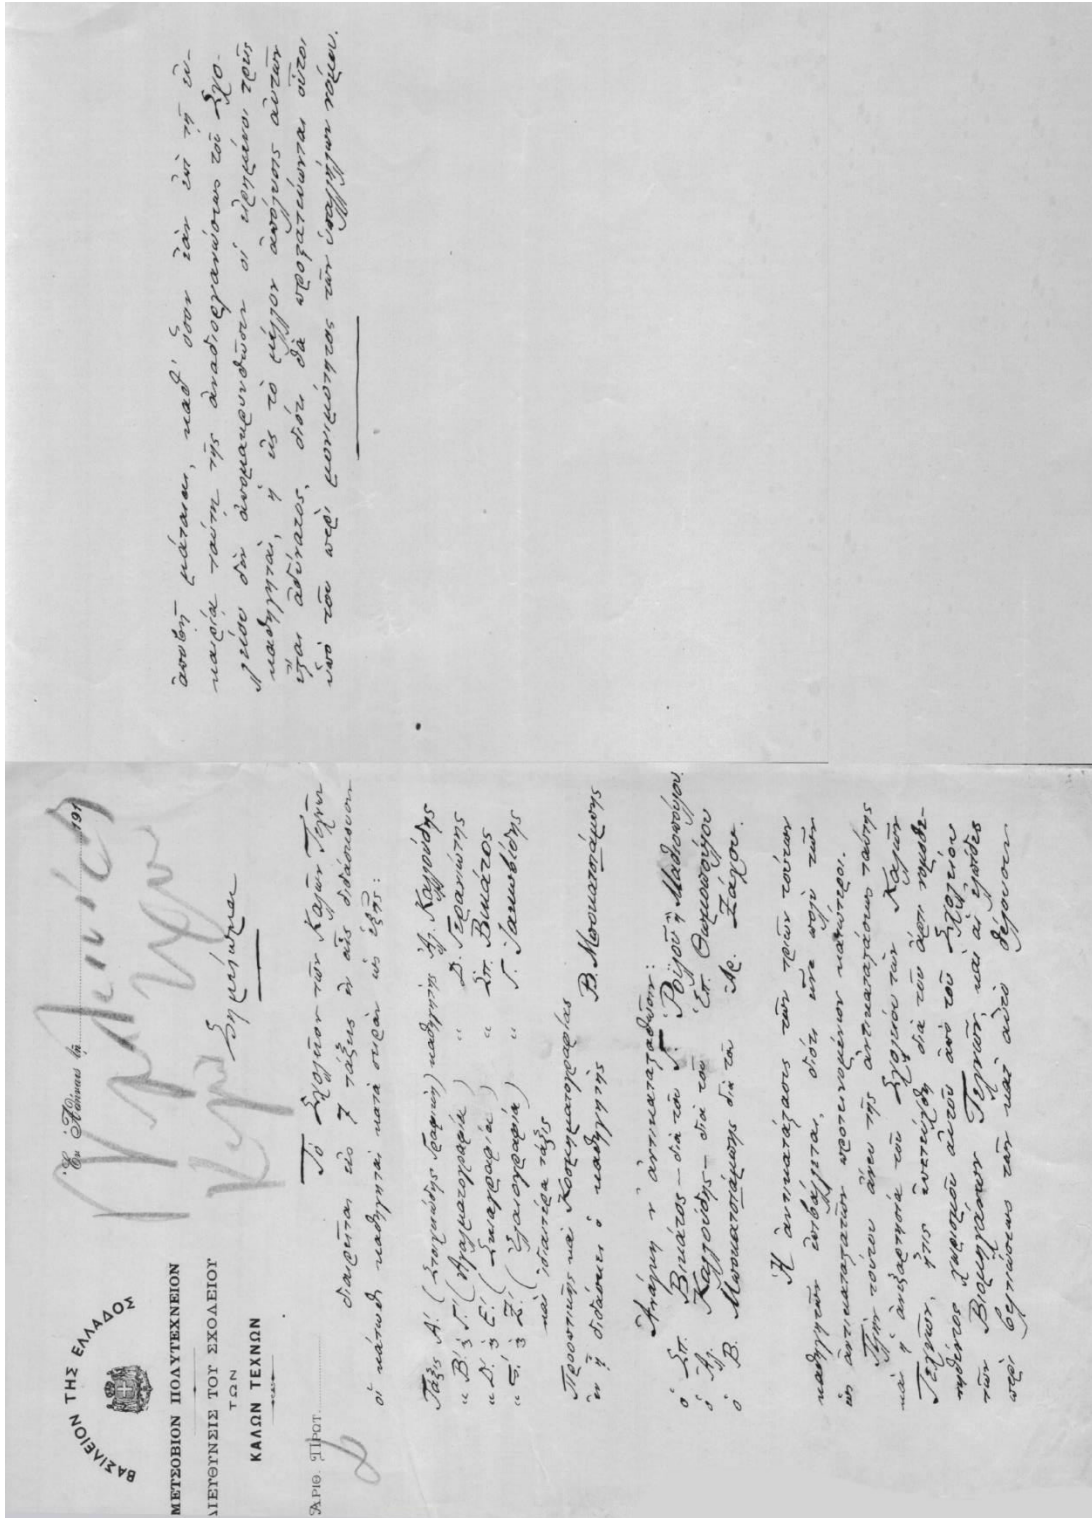 ΒΑΣΙΛΕΙΟΝ ΤΗΣ ΕΛΛΑΔΟΣ
ΜΕΤΣΟΒΙΟΝ ΠΟΛΥΤΕΧΝΕΙΟΝ
ΔΙΕΥΘΥΝΣΙΣ ΤΟΥ ΣΧΟΛΕΙΟΥ
ΤΩΝ
ΚΑΛΩΝ ΤΕΧΝΩΝ
ΑΡΙΘ. ΠΡΩΤ.
Ἐν Ἀθήναις τῇ 191
Σημείωμα
Τὸ Σχολεῖον τῶν Καλῶν Τεχνῶν
διαιρεῖται εἰς 7 τάξεις ἐν αἷς διδάσκουσιν
οἱ κάτωθι καθηγηταὶ κατὰ σειρὰν ὡς ἑξῆς:
Τάξις Α΄. (Στοιχειώδης Γραφική) καθηγητὴς Ἀλ. Καλλούδης
" Β΄ & Γ΄. (Ἀγαλματογραφία) " Δ. Γερανιώτης
" Δ΄ & Ε΄. (Σκιαγραφία) " Σπ. Βικάτος
" ΣΤ. & Ζ΄. (Ἐλαιογραφία) " Γ. Ἰακωβίδης
καὶ ἰδιαιτέρα τάξις
Προοπτικῆς καὶ Κοσμηματογραφίας
ἐν ᾗ διδάσκει ὁ καθηγητὴς Β. Μποκατσιάμπης
Ἀνάγκη ν' ἀντικατασταθῶσιν:
ὁ Σπ. Βικάτος – διὰ τοῦ Γ. Ροϊλοῦ ἢ Μαθιοπούλου
ὁ Ἀλ. Καλλούδης – διὰ τοῦ Ἐπ. Θωμοπούλου
ὁ Β. Μποκατσιάμπης διὰ τοῦ Ἀρ. Ζάχου.
Ἡ ἀντικατάστασις τῶν τριῶν τούτων
καθηγητῶν ἐπιβάλλεται, διότι εἶνε πολὺ τῶν
ὡς ἀντικαταστατῶν προτεινομένων κατώτεροι.
Πλὴν τούτου ἄνευ τῆς ἀντικαταστάσεως ταύτης
καὶ ἡ ἀνεξαρτησία τοῦ Σχολείου τῶν Καλῶν
Τεχνῶν, ἥτις ἐπετεύχθη διὰ τοῦ ἄρτι νομοθε-
τηθέντος χωρισμοῦ αὐτοῦ ἀπὸ τοῦ Σχολείου
τῶν Βιομηχάνων Τεχνῶν, καὶ αἱ ἐλπίδες
περὶ βελτιώσεως τῶν κατ' αὐτὸ θέλουσιν
ἀποβῆ μάταιαι, καθ' ὅσον ἐὰν ἐπὶ τῇ εὐ-
καιρίᾳ ταύτῃ τῆς ἀναδιοργανώσεως τοῦ Σχο-
λείου δὲν ἀπομακρυνθῶσιν οἱ εἰρημένοι τρεῖς
καθηγηταί, ἡ εἰς τὸ μέλλον ἀπόλυσις αὐτῶν
ἔσται ἀδύνατος, διότι θὰ προστατεύωνται οὗτοι
ὑπὸ τοῦ περὶ μονιμότητος τῶν ὑπαλλήλων νόμου.